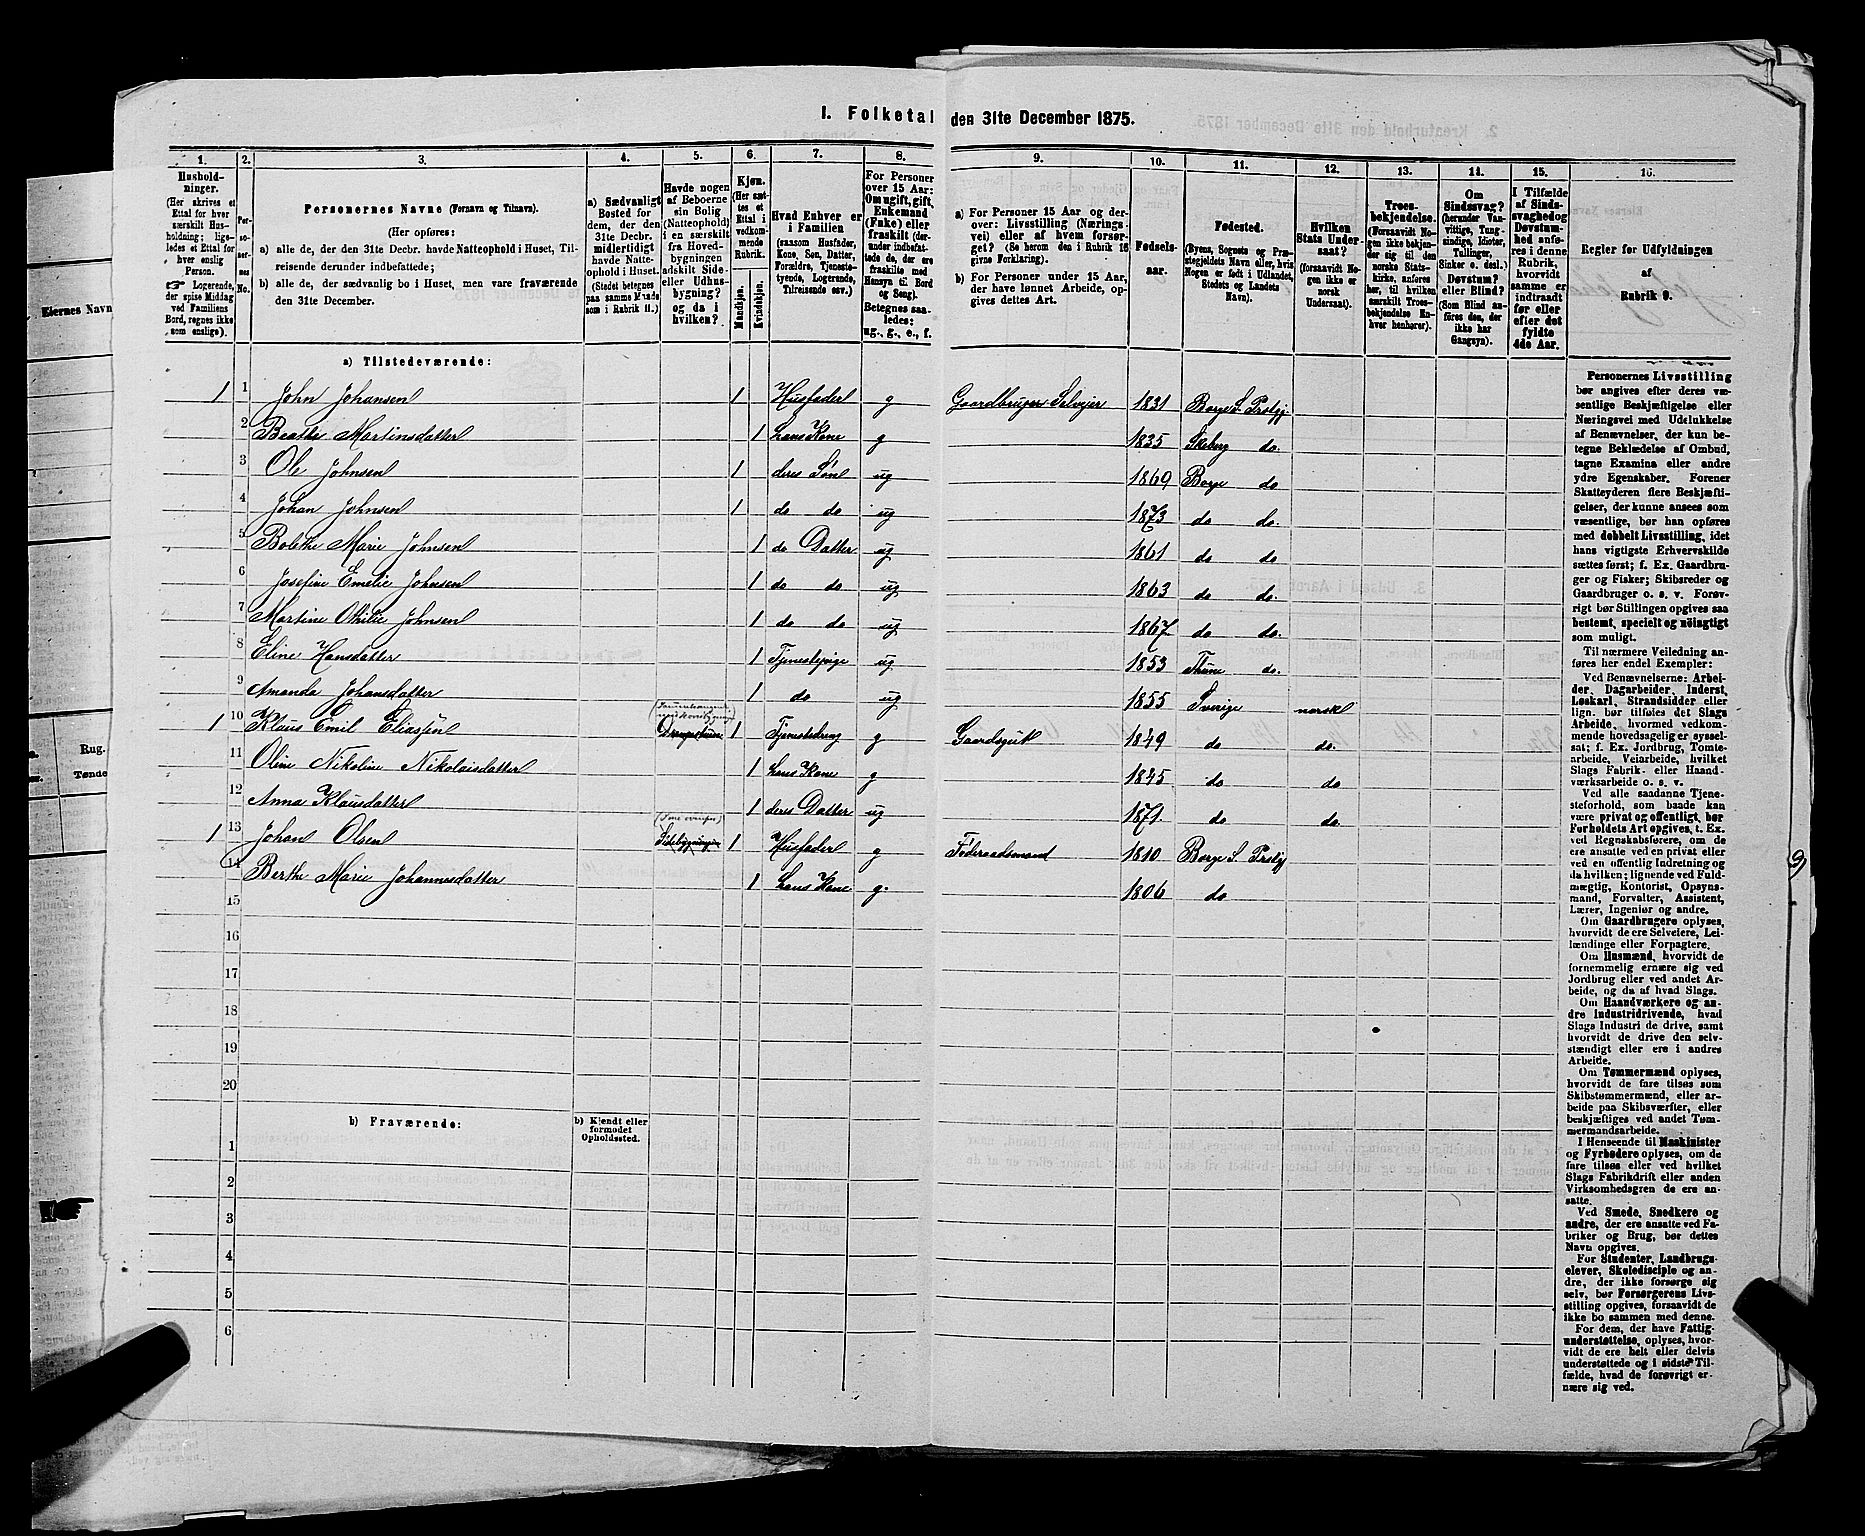 1. Folketal den 31te December 1875.
1.
2.
3.
4.
5.
6.
7.
8.
9.
10.
11.
12.
13.
14.
15.
16.
Husholdninger.
(Her skrives et
Ettal for hver
særskilt Husholdning; ligeledes
et Ettal for
hver enslig
Person.
Logerende,
der spise Middag
ved Familiens
Bord, regnes ikke
som enslige).
Personernes No.
Personernes Navne (Fornavn og Tilnavn).
(Her opføres:
a) alle de, der den 31te Decbr. havde Natteophold i Huset, Tilreisende
derunder indbefattede;
b) alle de, der sædvanlig bo i Huset, men vare fraværende
den 31te December.
a) Sædvanligt
Bosted for
dem, der den
31te Decbr.
midlertidigt
havde Natteophold
i Huset.
(Stedet betegnes
paa samme Maade
som i Rubrik 11.)
Havde nogen
af Beboerne
sin Bolig
(Natteophold)
i en særskilt
fra Hovedbygningen
adskilt Side-
eller Udhusbygning?
og da i
hvilken?
Kjøn.
(Her sættes
et
Ettal i
vedkommende
Rubrik.
Mandkjøn.
Kvindekjøn.
Hvad Enhver er
i Familien
(saasom Husfader,
Kone, Søn, Datter,
Forældre, Tjenestetyende,
Logerende,
Tilreisende osv.)
For Personer
over 15 Aar:
Om ugift, gift,
Enkemand
(Enke) eller
fraskilt (derunder
indbefattede,
de, der ere
fraskilte med
Hensyn til Bord
og Seng).
Betegnes saaledes:
ug., g., e., f.
a) For Personer 15 Aar og derover:
Livsstilling (Næringsvei)
eller af hvem forsørget?
(Se herom den i Rubrik 16
givne Forklaring).
b) For Personer under 15 Aar,
der have lønnet Arbeide, opgives
dettes Art.
Fødselsaar.
Fødested.
(Byens, Sognets og Præstegjeldets
Navn eller, hvis
Nogen er født i Udlandet,
Stedets og Landets
Navn).
Hvilken
Stats Undersaat?
(forsaavidt Nogen
ikke er
norsk
Undersaat).
Troesbekjendelse.
(Forsaavidt Nogen
ikke bekjender
sig til den
norske Statskirke,
anføres
her, til hvilken
særskilt Troesbekjendelse
Enhver
henhører).
Om
Sindssvag?
(herunder Vanvittige,
Tungsindige,
Idioter,
Tullinger,
Sinker o. desl.)
Døvstum?
eller Blind?
(Som Blind anføres
den, der
ikke har
Gangsyn).
I Tilfælde
af Sindssvaghed
og
Døvstumhed
anføres
i denne
Rubrik,
hvorvidt
samme er
indtraadt
før eller
efter det
fyldte
4de Aar.
Regler for Udfyldningen
af
Rubrik 9.
a) Tilstedeværende:
1 1 John Johansen 1 Husfader g Gaardbruger Selvejer 1831 Borge S. Prstgj
2 Beathe Martinsdatter 1 hans Kone g 1835 Skeberg do.
3 Ole Johnsen 1 deres Søn ug 1869 Borge do
4 Johan Johnsen 1 do do ug 1873 do do.
5 Bolethe Marie Johnsen 1 do Datter ug 1861 do do
6 Josefine Emelie Johnsen 1 do do ug 1863 do do.
7 Martine Othilie Johnsen 1 do do ug 1867 do do.
8 Eline Hansdatter 1 Tjenestepige ug 1853 Thune do.
9 Amanda Johansdatter 1 do ug 1855 Sverige norsk
1 10 Klaus Emil Eliassøn 1 Tjenestedreng g Gaardsgut 1849 do do.
11 Oline Nikoline Nikolaisdatter 1 hans Kone g 1845 do do
12 Anna Klausdatter 1 deres Datter ug 1871 do do
1 13 Johan Olsen Sidebygningen 1 Husfader g Føderaadsmand 1810 Borge S. Prstgj
14 Berthe Marie Johannesdatter 1 hans Kone g. 1806 do
15
16
17
18
19
20
b) Fraværende:
b) Kjendt eller
formodet
Opholdssted.
1
2
3
4
5
6
Personernes Livsstilling
bør angives efter deres væsentlige
Beskjæftigelse eller
Næringsvei med Udelukkelse
af Benævnelser, der kun betegne
Beklædelse af Ombud,
tagne Examina eller andre
ydre Egenskaber. Forener
Skatteyderen flere Beskjæftigelser,
der kunne ansees som
væsentlige, bør han opføres
med dobbelt Livsstilling, idet
hans vigtigste Erhvervskilde
sættes først; f. Ex. Gaardbruger
og Fisker; Skibsreder og
Gaardbruger o. s. v. Forøvrigt
bør Stillingen opgives saa
bestemt, specielt og nöiagtigt
som muligt.
Til nærmere Veiledning anføres
her endel Exempler:
Ved Benævnelserne: Arbeider,
Dagarbeider, Inderst,
Løskarl, Strandsidder eller
lign. bør tilføies det Slags
Arbeide, hvormed vedkommende
hovedsagelig er sysselsat;
f. Ex. Jordbrug, Tomtearbeide,
Veiarbeide, hvilket
Slags Fabrik- eller Haandværksarbeide
o. s. v.
Ved alle saadanne Tjenesteforhold,
som baade kan
være privat og offentligt, bør
Forholdets Art opgives, t. Ex.
ved Regnskabsførere, om de
ere ansatte ved en privat eller
ved en offentlig Indretning og
da hvilken; lignende ved Fuldmægtig,
Kontorist, Opsynsmand,
Forvalter, Assistent,
Lærer, Ingeniør og andre.
Om Gaardbrugere oplyses,
hvorvidt de ere Selveiere, Leilændinge
eller Forpagtere.
Om Husmænd, hvorvidt de
fornemmelig ernære sig ved
Jordbrug eller ved andet Arbeide,
og da af hvad Slags.
Om Haandværkere og andre
industridrivende, hvad
Slags Industri de drive, samt
hvorvidt de drive den selvstændigt
eller ere i andres
Arbeide.
Om Tømmermænd oplyses,
hvorvidt de fare tilsøs som
Skibstømmermænd, eller arbeide
paa Skibsværfter, eller
beskjæftiges ved andet Tømmermandsarbeide.
I Henseende til Maskinister
og Fyrbødere oplyses, om de
fare tilsøs eller ved hvilket
Slags Fabrikdrift eller anden
Virksomhedsgren de ere ansatte.
Ved Smede, Snedkere og
andre, der ere ansatte ved Fabriker
og Brug, bør dettes
Navn opgives.
For Studenter, Landbrugselever,
Skoledisciple og andre,
der ikke forsørge sig
selv, bør Forsørgerens Livsstilling
opgives, forsaavidt de
ikke bo sammen med denne.
For dem, der have Fattigunderstøttelse,
oplyses, hvorvidt
de ere helt eller delvis
understøttede og i sidste Tilfælde,
hvad de forøvrigt ernære
sig ved.
Eiernes Navn
Rug.
Tønder